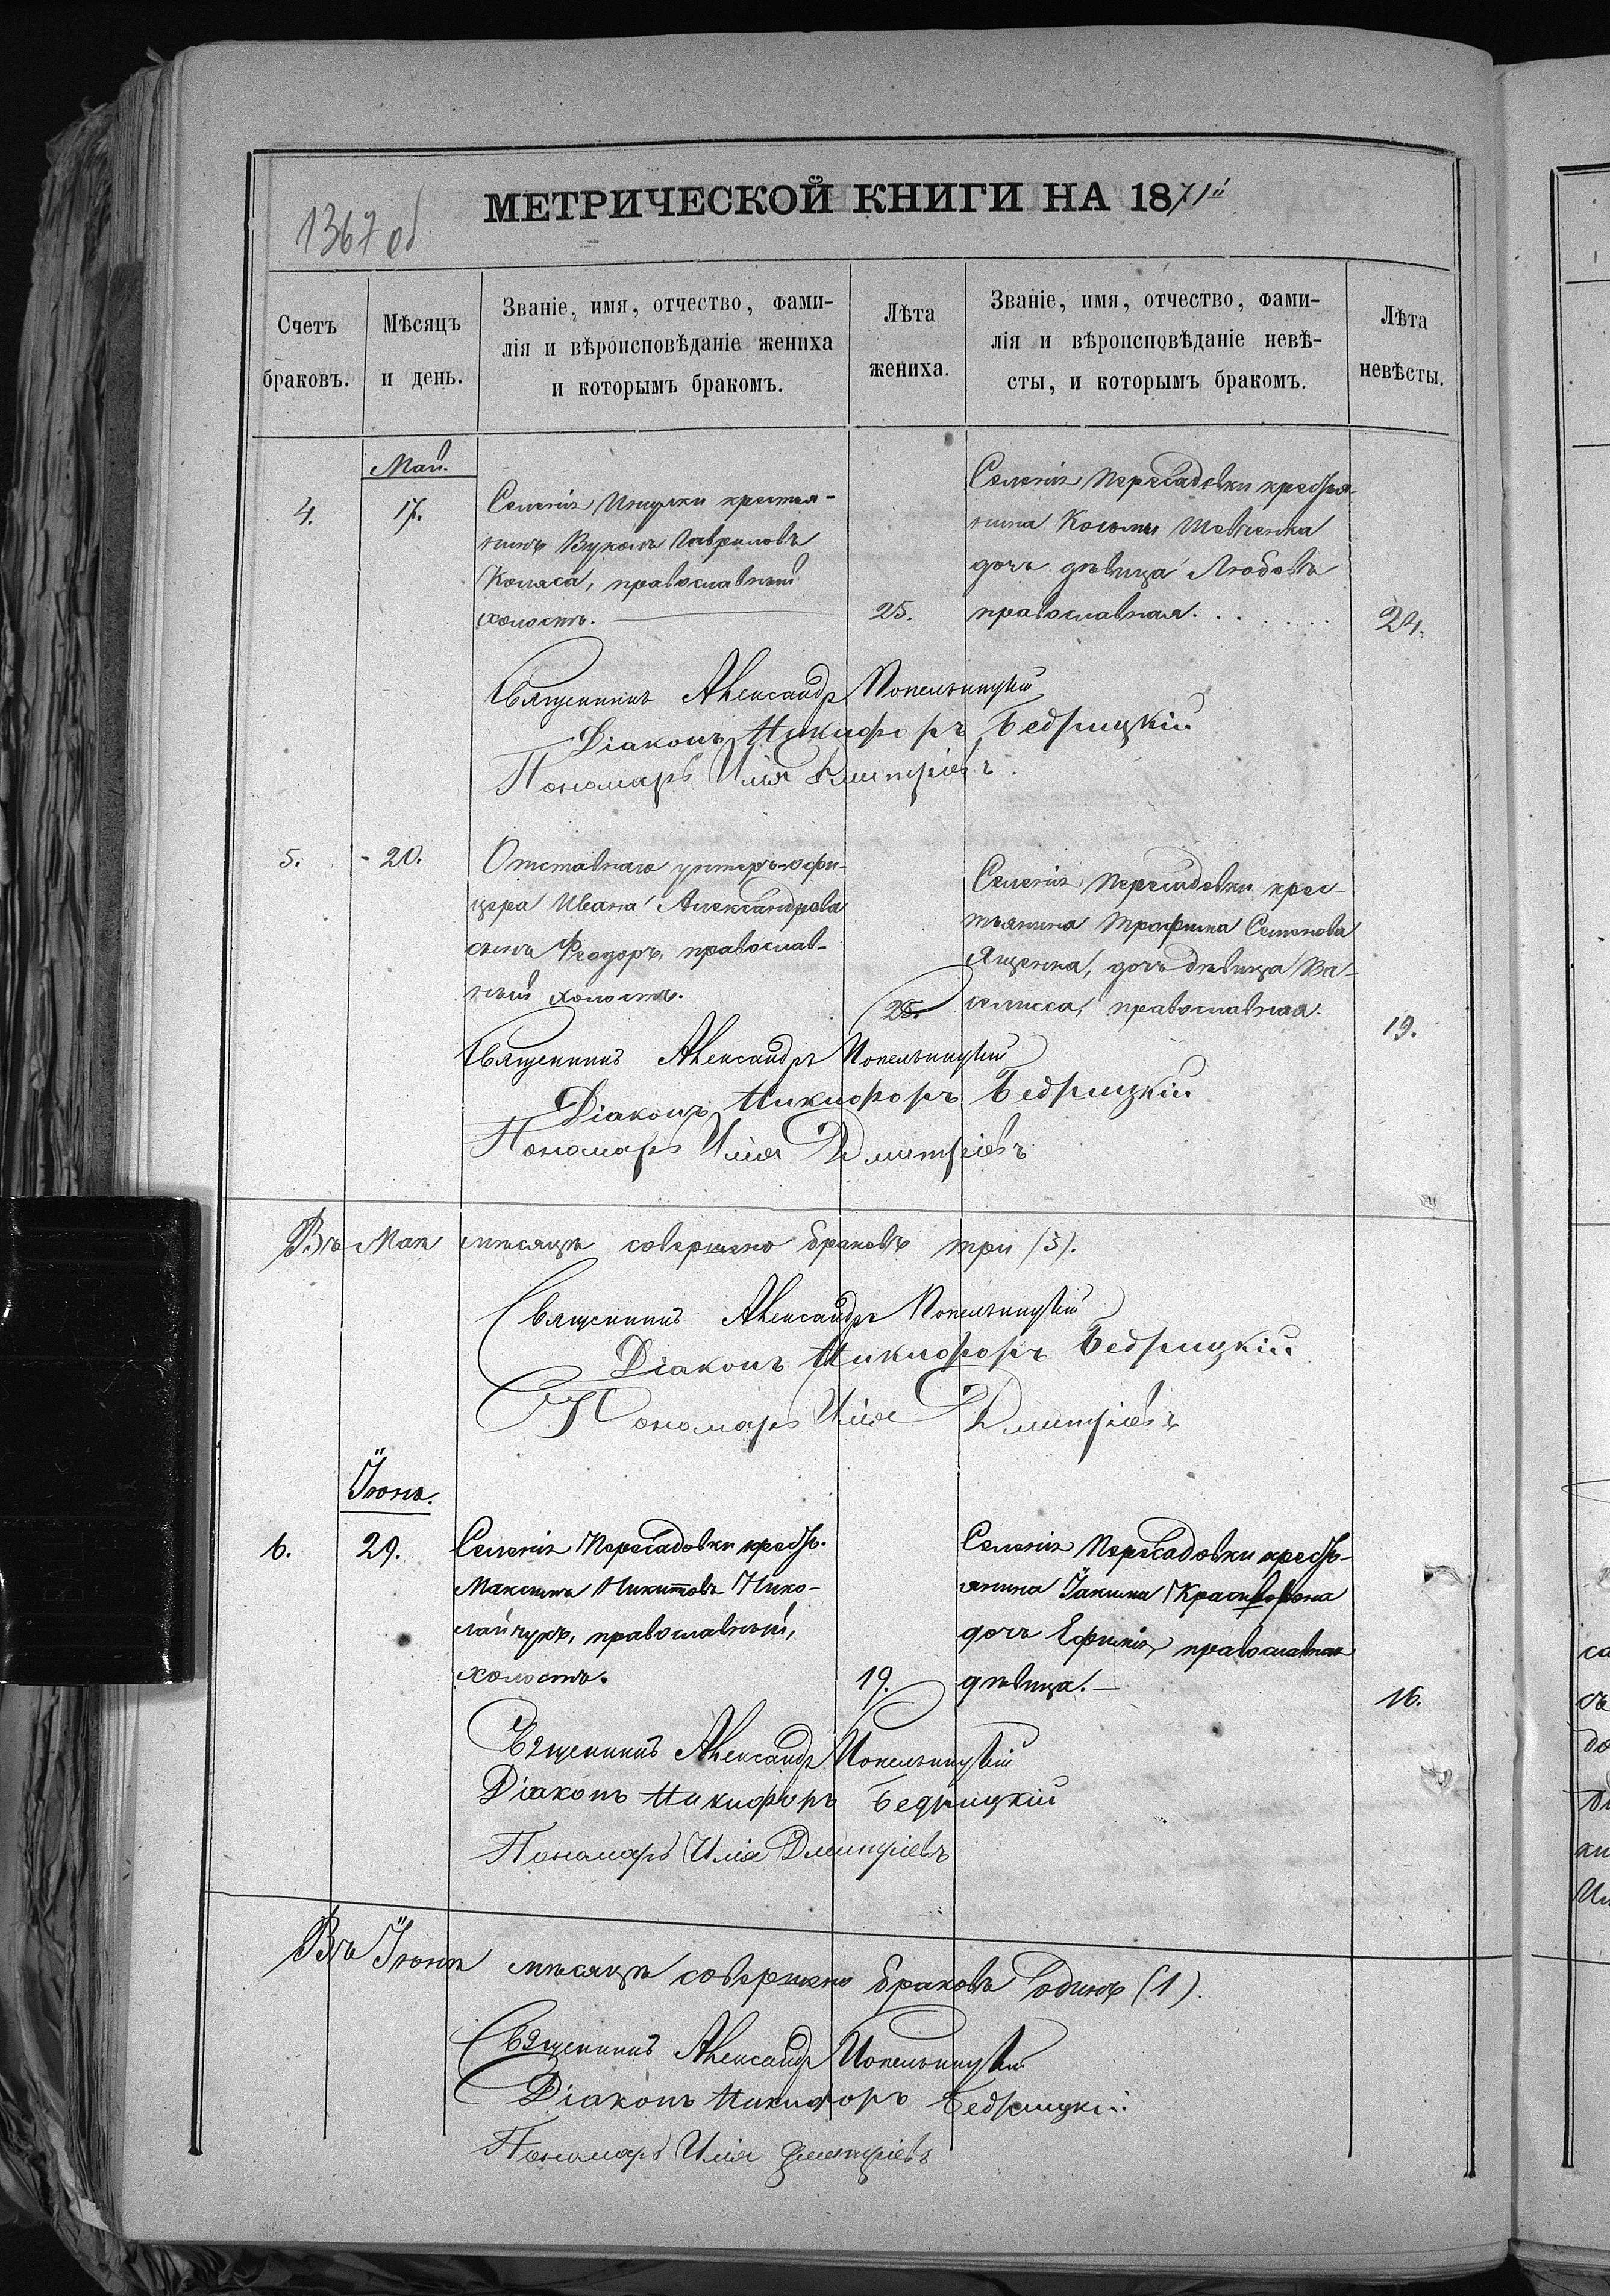 МЕТРИЧЕСКОЙ КНИГИ НА 1871й
1367 об
Счетъ браковъ.
Мѣсяцъ и день.
Званіе, имя, отчество, фами-
лія и вѣроисповѣданіе жениха
и которымъ бракомъ.
Лѣта жениха.
Званіе, имя, отчество, фами-
лія и вѣроисповѣданіе невѣ-
сты, и которымъ бракомъ.
Лѣта невѣсты.
Май.
4.
17.
Селенія крестья-
нинъ Вуколъ Гавриловъ
Коляса, православный
холостъ.
25.
Селенія Пересадовки крестья-
нина Косьмы Шевченка
дочь дѣвица Любовь
православная.
24.
Священникъ Александръ Попельницкій
Діаконъ Никифоръ Бедрицкій
Пономарь Илія Дмитріевъ.
5.
20.
Отставнаго унтеръ-офи-
цера Ивана Александрова
сынъ Феодоръ, православ-
ный холостъ.
25.
Селенія Пересадовки крес-
тьянина Трофима Семенова
Ященка, дочь дѣвица Ва-
силисса, православная.
19.
Священникъ Александръ Попельницкій
Діаконъ Никифоръ Бедрицкій
Пономарь Илія Дмитріевъ
Въ Маѣ мѣсяцѣ совершено браковъ три (3).
Священникъ Александръ Попельницкій
Діаконъ Никифоръ Бедрицкій
Пономарь Илія Дмитріевъ
Іюнь.
6.
29.
Селенія Пересадовки крестья.
Максимъ Никитовъ Нико-
лайчукъ, православный,
холостъ.
19.
Селенія Пересадовки крестья-
янина Іакима
дочь Ефимія, православная
дѣвица.
16.
Священникъ Александръ Попельницкій
Діаконъ Никифоръ Бедрицкій
Пономарь Илія Дмитріевъ
Въ Іюнѣ мѣсяцѣ совершено браковъ одинъ (1).
Священникъ Александръ Попельницкій
Діаконъ Никифоръ Бедрицкій
Пономарь Илія Дмитріевъ